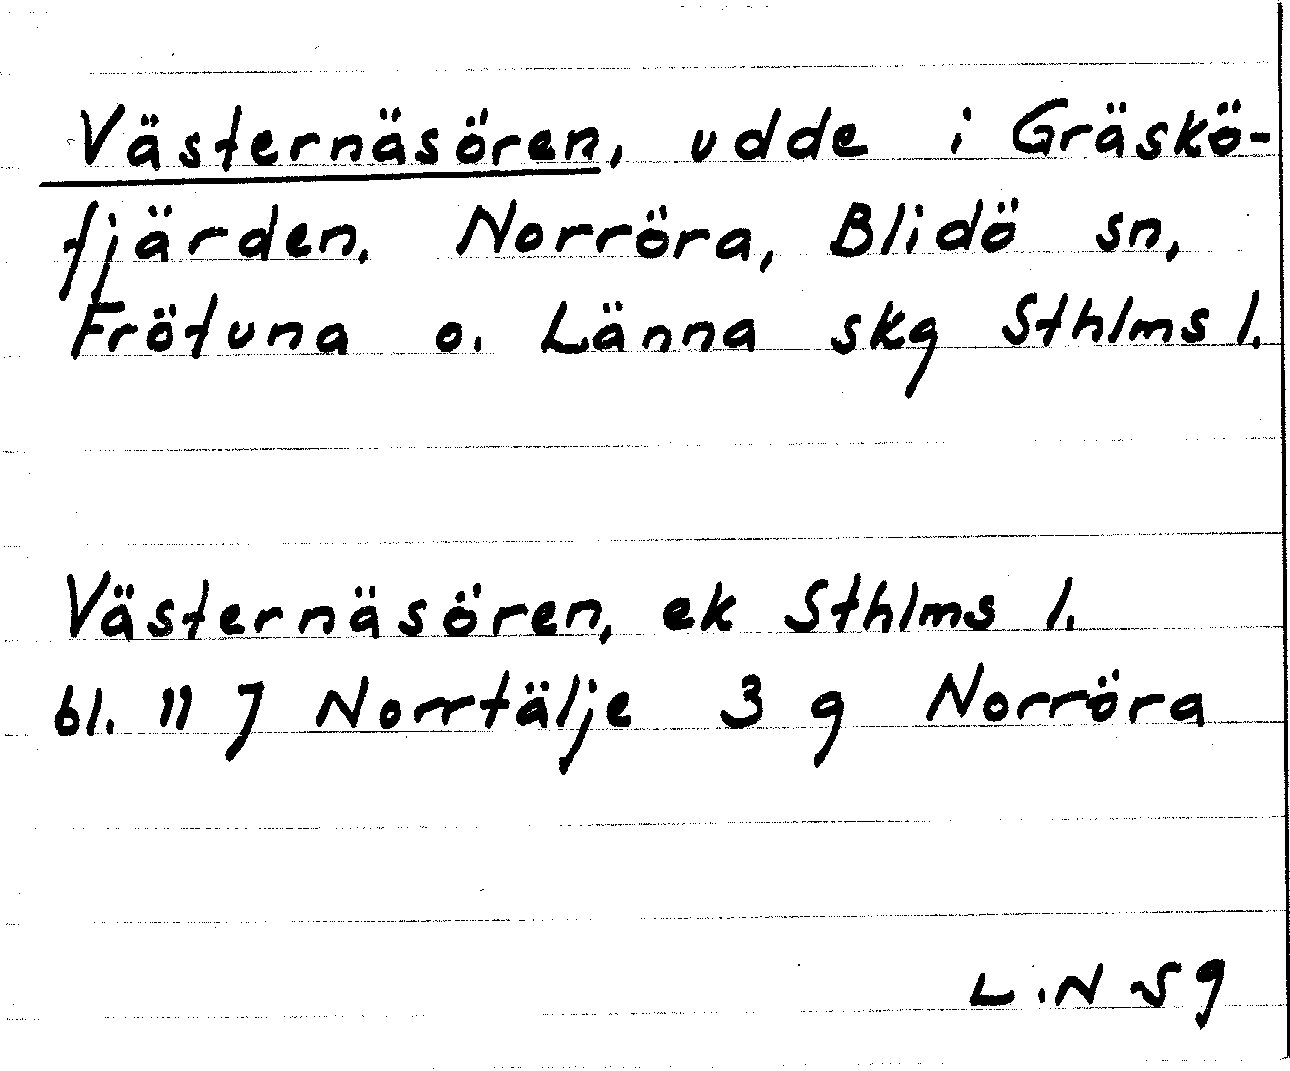 Västernäsören, udde i Gräskö-
fjärden, Norröra, Blidö sn,
Frötuna o. Länna skg Sthlms l.
Västernäsören, ek Sthlms l.
bl. 117 Norrtälje 3 g Norröra
L.N 59